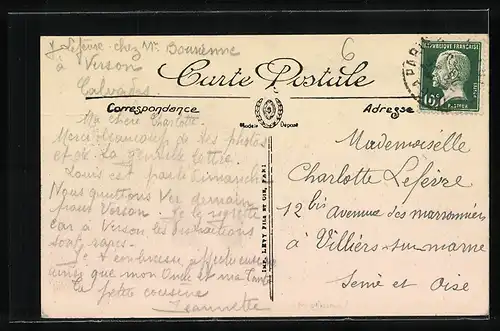 J. Lefèvre chez Mr Bourienne
à Verson
Calvados
6
Carte Postale
Correspondance
Adresse
Modèle Déposé
REPUBLIQUE FRANÇAISE
PARIS
10c
POSTES
Ma chère Charlotte.
Merci beaucoup de tes photos
et de ta gentille lettre.
Louis est parti dimanche
Nous quittons Ver demain
pour Verson. Je le regrette
car à Verson les distractions
sont rares.
Je t'embrasse affectueusement
ainsi que mon Oncle et ma Tante
Ta petite cousine
Jeannette
IMP. LEVY FILS ET CIE, PARIS
Mademoiselle
Charlotte Lefèvre
12 bis avenue des marronniers
à Villiers-sur-marne
Seine et Oise